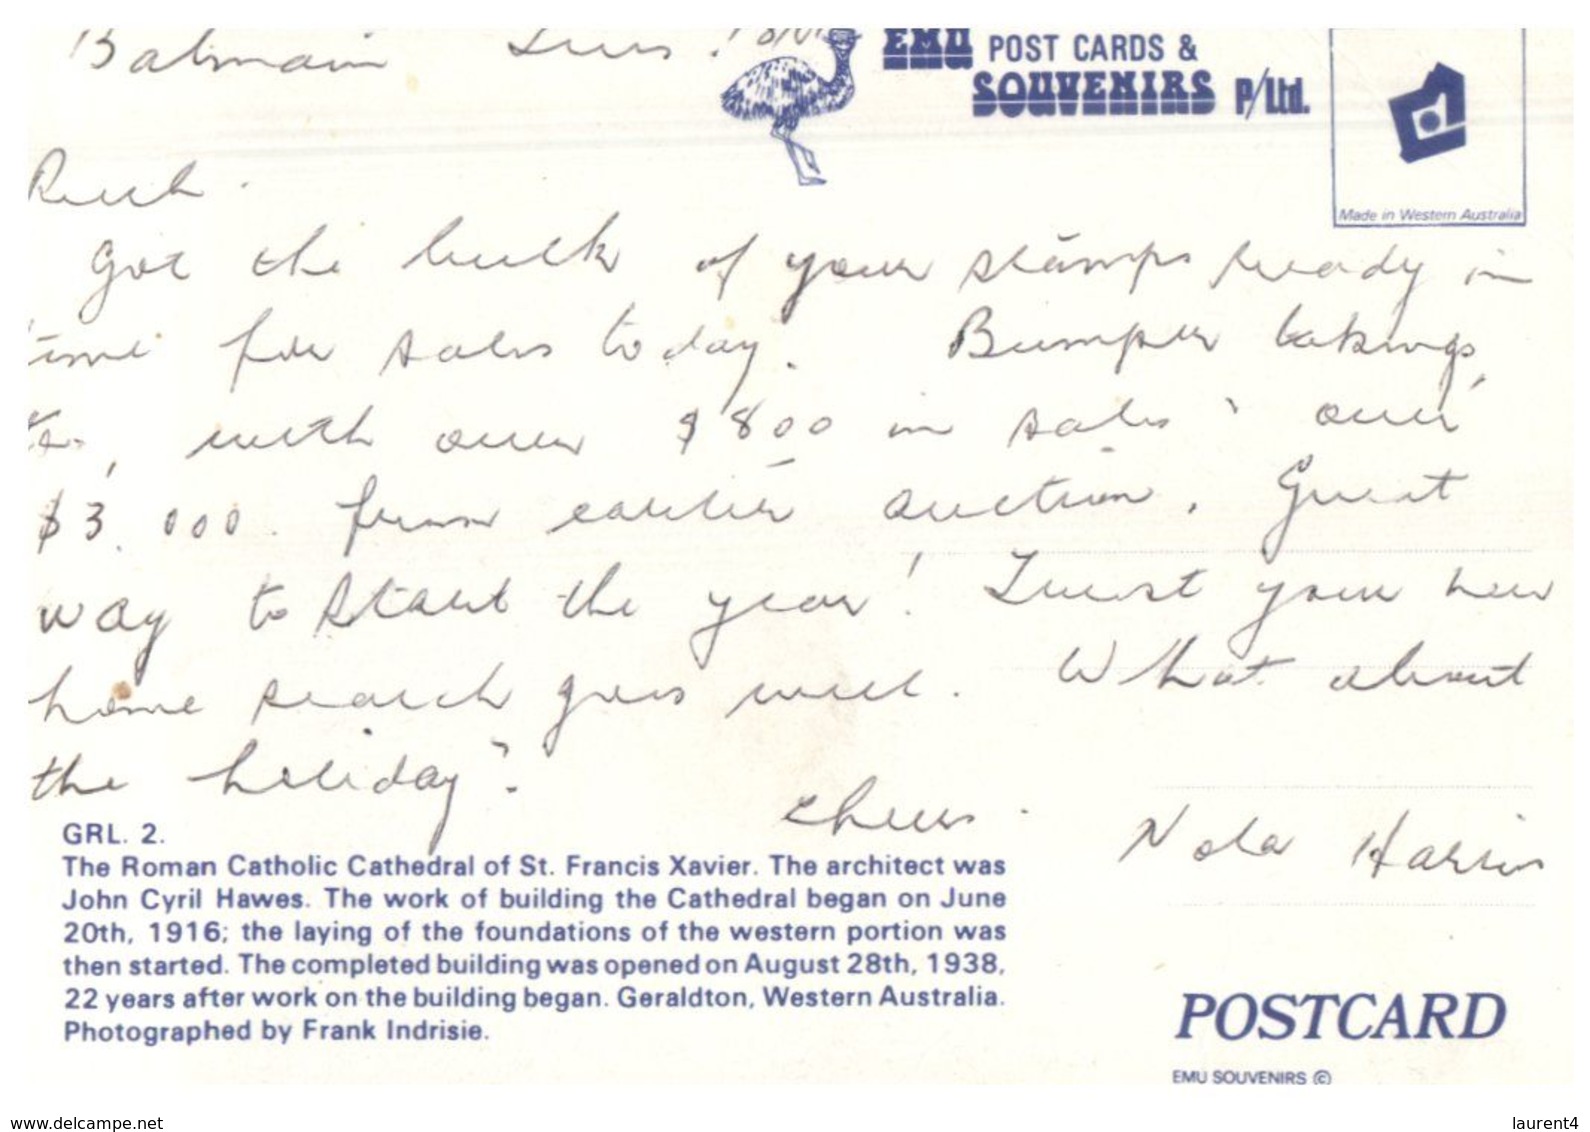 Balmain Tues
EMU POST CARDS &
SOUVENIRS P/Ltd.
Made in Western Australia
Ruth.
Got the bulk of your stamps ready in
time for sales today. Bumper takings,
too, with over $800 in sales & over
$3,000 from earlier auction. Great
way to start the year! Trust your new
home search goes well. What about
the holiday?
Cheers.
Nola Harris
GRL. 2.
The Roman Catholic Cathedral of St. Francis Xavier. The architect was
John Cyril Hawes. The work of building the Cathedral began on June
20th, 1916; the laying of the foundations of the western portion was
then started. The completed building was opened on August 28th, 1938,
22 years after work on the building began. Geraldton, Western Australia.
Photographed by Frank Indrisie.
POSTCARD
EMU SOUVENIRS ©
www.delcampe.net
laurent4